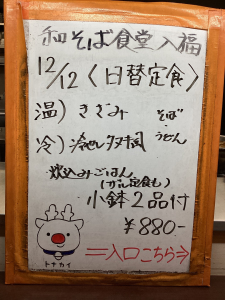 和そば食堂 入福
12/12〈日替定食〉
温)きざみ そば
冷) うどん
炊込みごはん
小鉢2品付
¥880-
トナカイ
入口こちら⇨